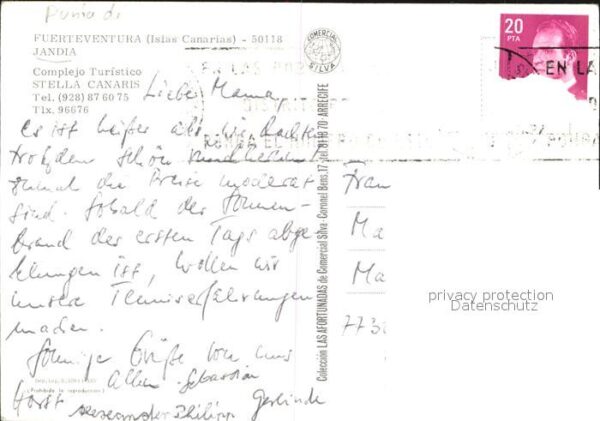 Punta de
FUERTEVENTURA (Islas Canarias) - 50118
JANDIA
Complejo Turístico
STELLA CANARIS
Tel. (928) 87 60 75
Tlx. 96676
COMERCIAL
SILVA
20
PTA
EN LA
Liebe Mama,
es ist heißer als wir dachten
trotzdem schön
zumal die Preise moderat
sind. Sobald der Sonnen-
brand des ersten Tags abge-
klungen ist, wollen wir
unsere Tenniserfahrungen
machen.
Sonnige Grüße von uns
Allen. Sebastian
Horst Alexander Philipp Gerlinde
Colección LAS AFORTUNADAS de Comercial Silva - Coronel Bens, 17 - Tel. 81 16 70 ARRECIFE
Frau
Ma
Ma
773
privacy protection
Datenschutz
(Prohibida la reproducción)